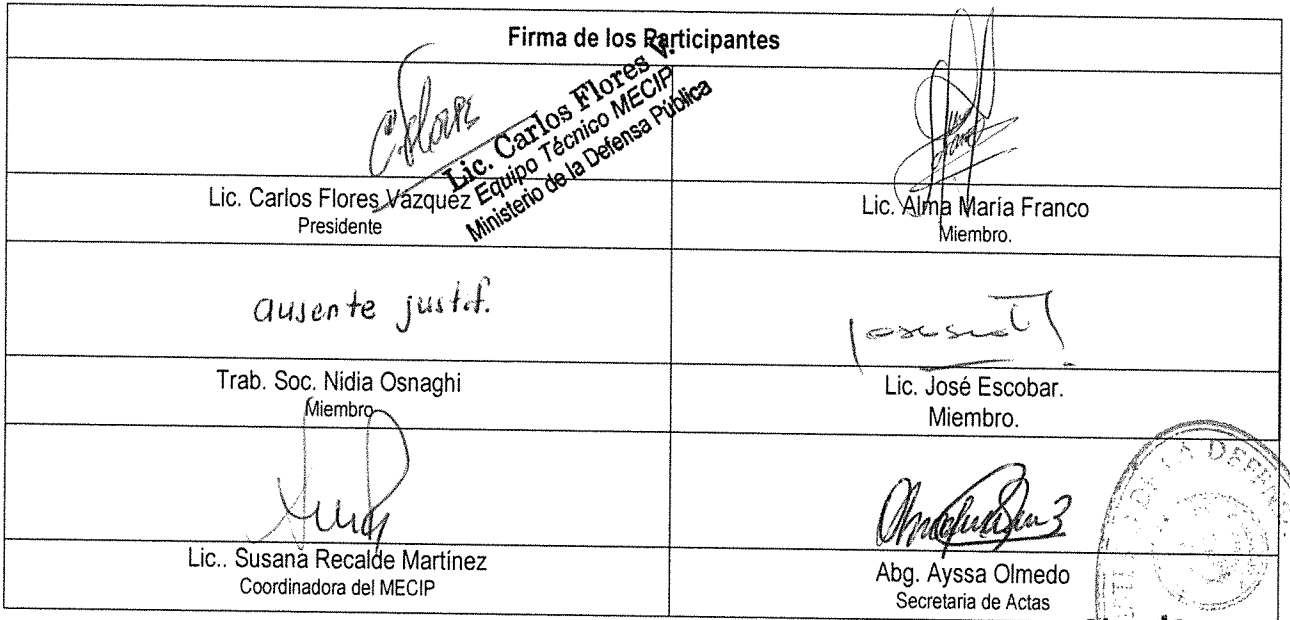 Firma de los Participantes
CFlores
Lic. Carlos Flores V.
Equipo Técnico MECIP
Ministerio de la Defensa Pública
Lic. Carlos Flores Vázquez
Presidente
Lic. Alma María Franco
Miembro.
ausente justif.
Trab. Soc. Nidia Osnaghi
Miembro
Lic. José Escobar.
Miembro.
Lic.. Susana Recalde Martínez
Coordinadora del MECIP
Abg. Ayssa Olmedo
Secretaria de Actas
DE LA DEFENS